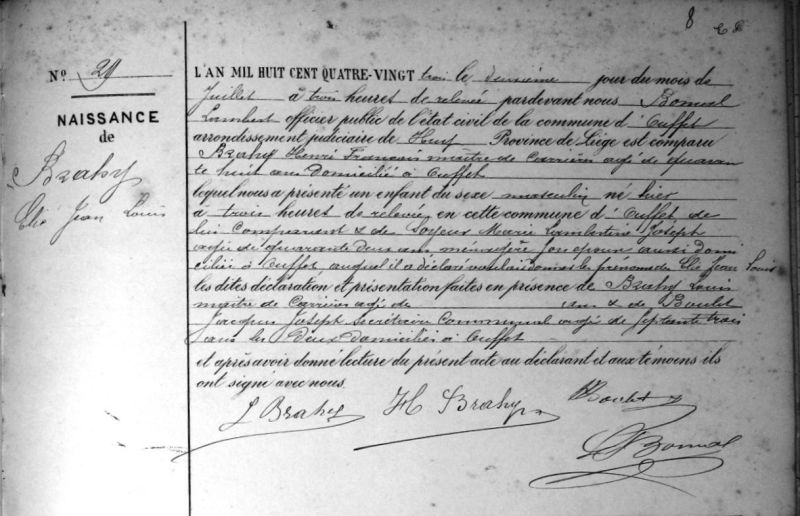 8
Nº 29
NAISSANCE
de
Brahy
Elie Jean Louis
L'AN MIL HUIT CENT QUATRE-VINGT trois le deuxième jour du mois de
Juillet à trois heures de relevée pardevant nous Bonval
Lambert officier public de l'état civil de la commune d'Ouffet
arrondissement judiciaire de Huy Province de Liége est comparu
Brahy Henri François maître de Carrière agé de quaran
te huit ans domicilié à Ouffet
lequel nous a présenté un enfant du sexe masculin né hier
à trois heures de relevée en cette commune d'Ouffet, de
lui Comparant & de Soyeur Marie Lambertine Joseph
agée de quarante deux ans ménagère son épouse aussi domi
ciliée à Ouffet auquel il a déclaré vouloir donner les prénoms de Elie Jean Louis
les dites déclaration et présentation faites en présence de Brahy Louis
maître de Carrière agé de ans & de Boulet
Jacques Joseph Secrétaire Communal agé de septante trois
ans les deux domiciliés à Ouffet
et après avoir donné lecture du présent acte au déclarant et aux témoins ils
ont signé avec nous.
L Brahy H Brahy Boulet
L Bonval